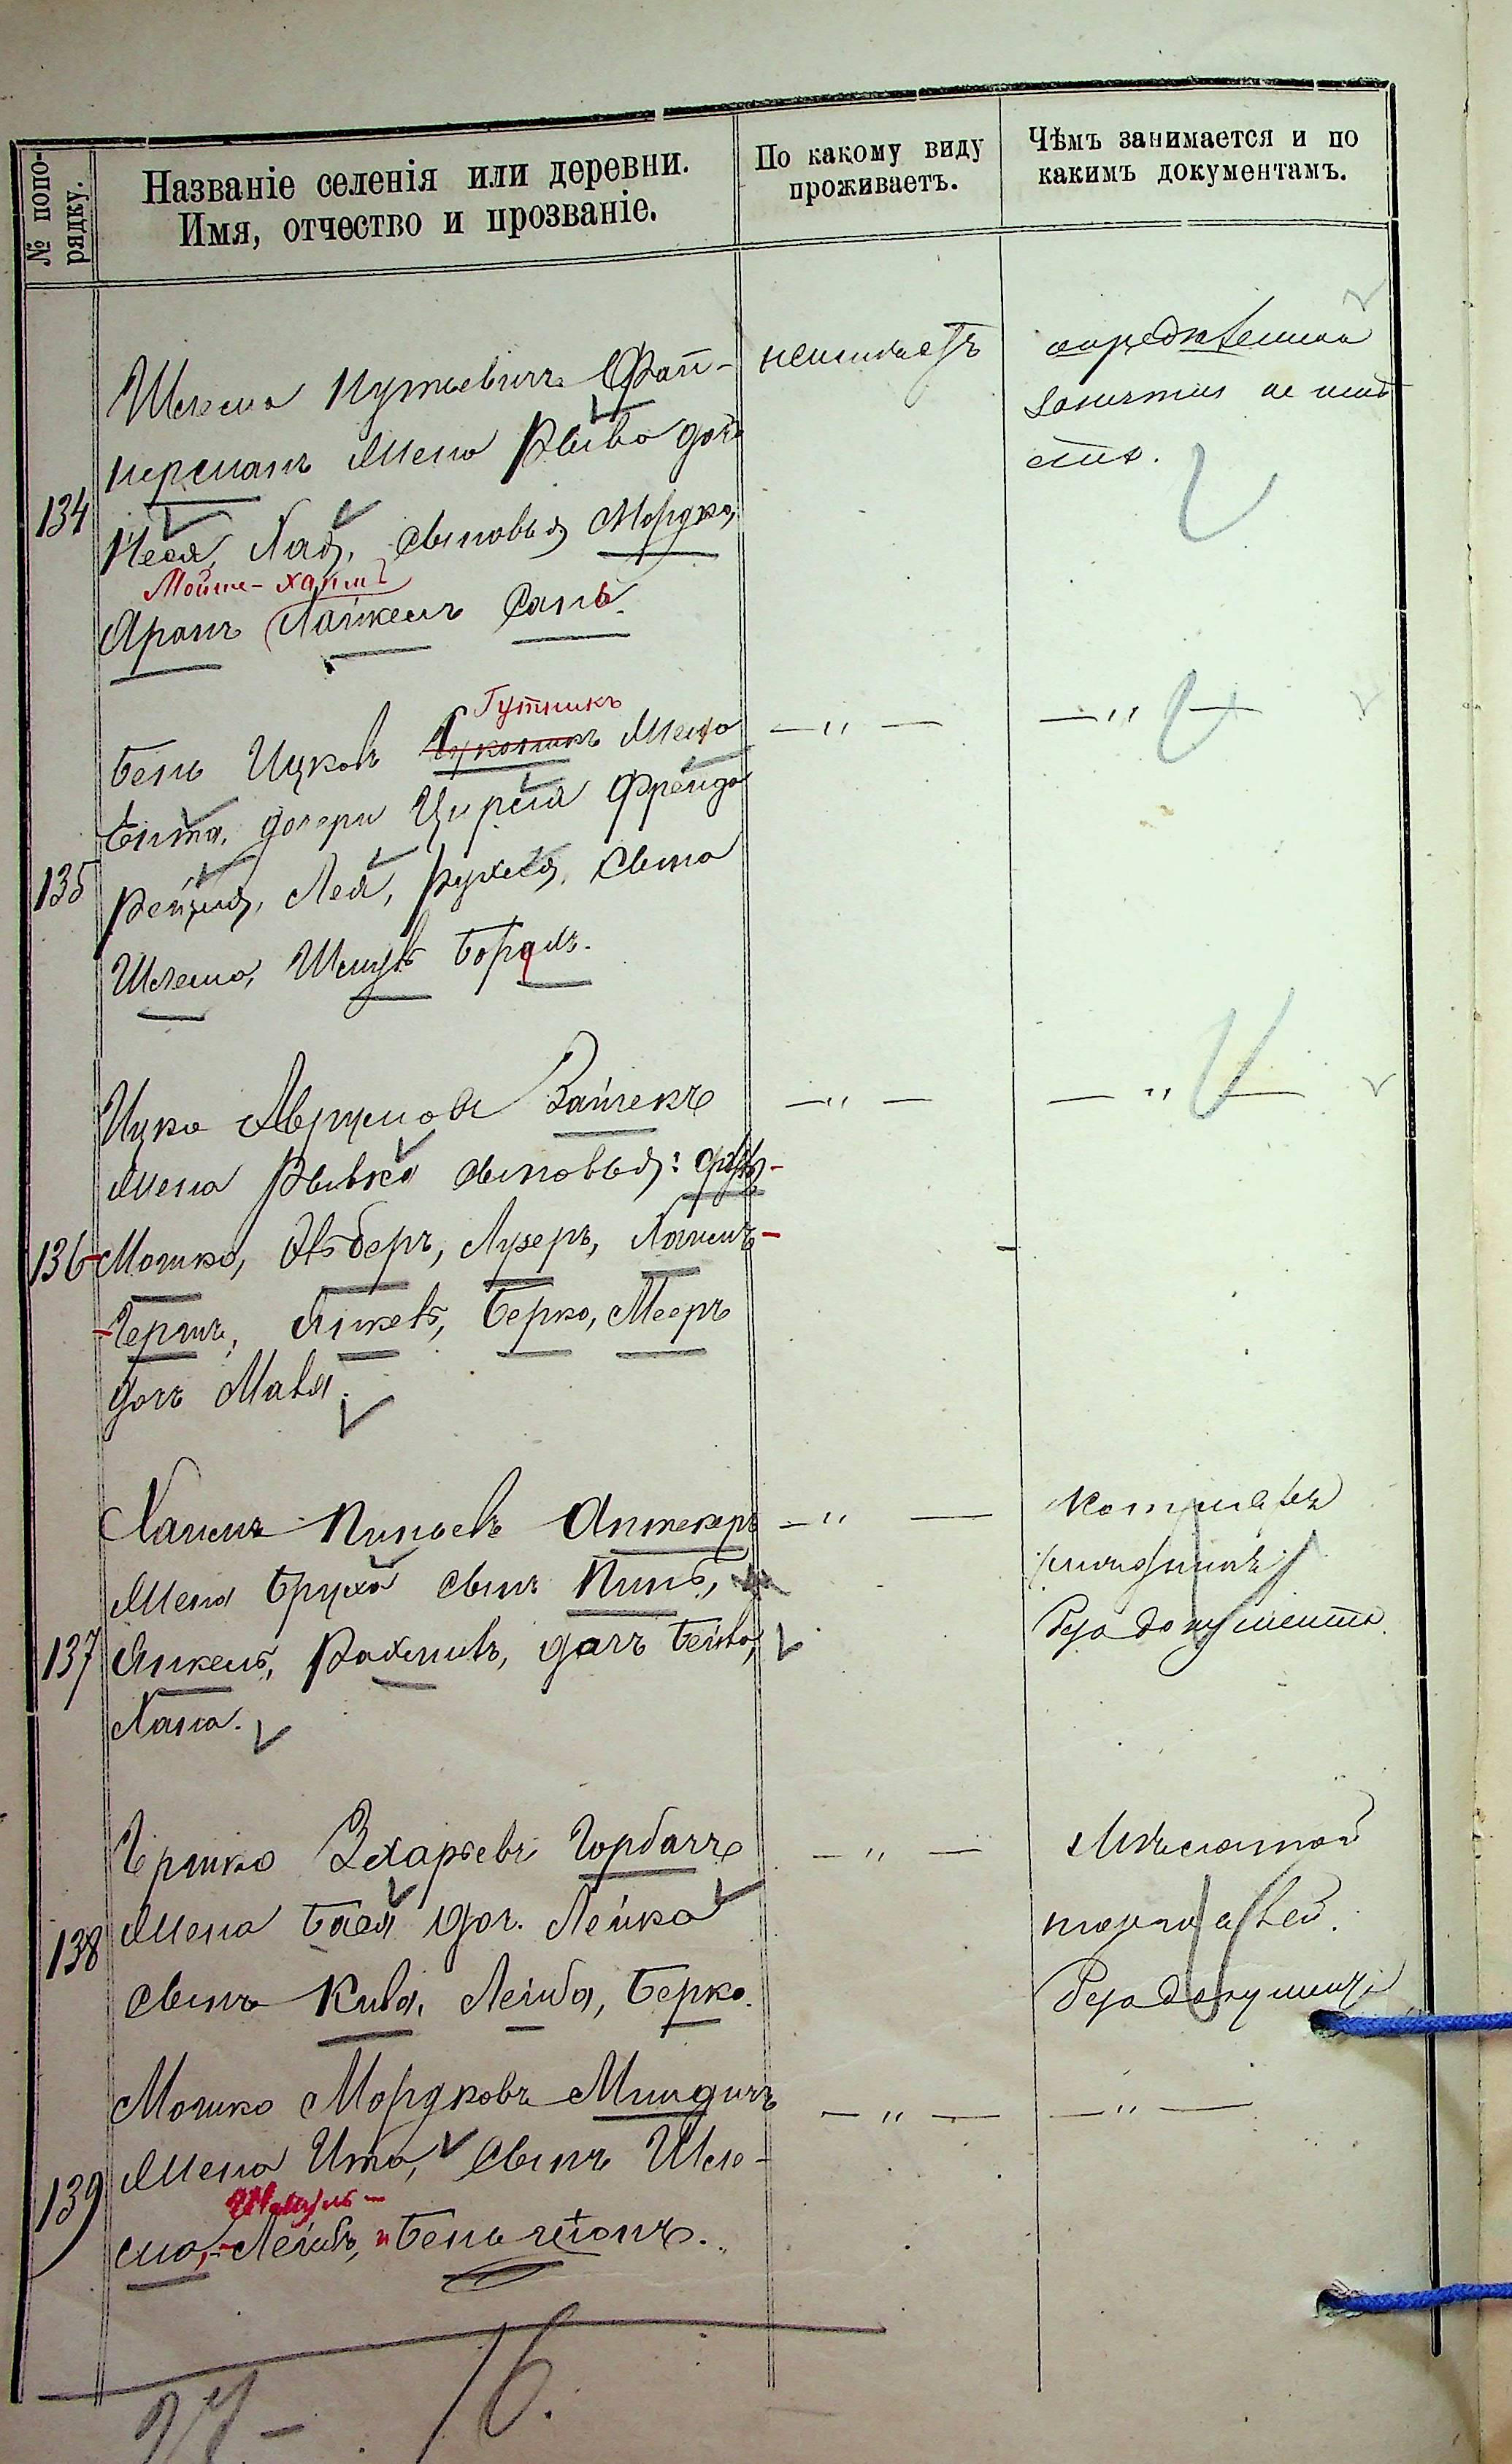 № попо-
рядку.
Названіе селенія или деревни.
Имя, отчество и прозваніе.
По какому виду
проживаетъ.
Чѣмъ занимается и по
какимъ документамъ.
134
Шлема Нутьевичъ Фай-
нерманъ Жена Рыва доч.
Неся, Хая, сыновья Мордко,
Мойше-Хаимъ
Аронъ Хаимъ Сань.
неимѣетъ
опредѣленной
занятія не имѣ
етъ.
135
Гутникъ
Бень Ицковъ Жена
Ента, дочери Цирля Фрейда
Рейзля, Лея, Рухля, сына
Шлема, Шмуль Борахъ.
— " —
— " —
136
Ицко Аврумовъ Зайчекъ
Жена Рывка сыновья:
Мошко, Лузеръ, Хаимъ-
Гершъ, Янкель, Берко, Мееръ
дочь Маля.
— " —
— " —
137
Хаимъ Пиньевъ Аптекеръ
Жена Бруха сынъ Пинь,
Янкель, Рахмиль, дочь Бейла,
Хана.
— " —
безъ документа.
138
Гершко Зхарьевъ Горбачъ
Жена Бася доч. Лейка
сынъ Кива, Лейба, Берко.
— " —
Мѣлочной
торговлей.
безъ докумен.
139
Мошко Мордковъ Миндичъ
Жена Ита, сынъ Шле-
Шмуль-
ма, Лейбъ, и Бень-ціонъ.
— " —
— " —
16.